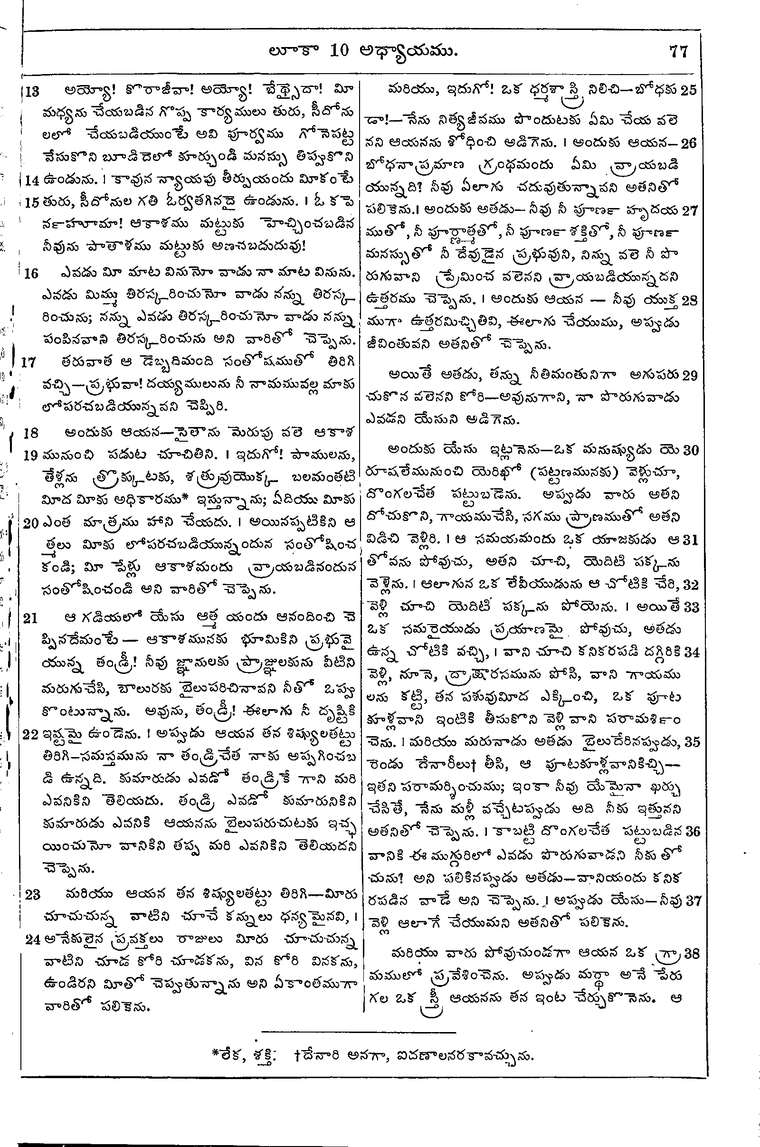 లూకా 10 అధ్యాయము. 77
13 అయ్యో! కొరాజీవా! అయ్యో! బేథ్సైదా! మీ
మధ్యను చేయబడిన గొప్ప కార్యములు తురు, సీదోను
లలో చేయబడియుంటే అవి పూర్వము గోనెపట్ట
వేసుకొని బూడిదెలో కూర్చుండి మనస్సు తిప్పుకొని
14 ఉండును. । కావున న్యాయపు తీర్పుయందు మీకంటే
15 తురు, సీదోనుల గతి ఓర్వతగినదై ఉండును. । ఓ కపె
నహూమా! ఆకాశము మట్టుకు హెచ్చించబడిన
నీవును పాతాళము మట్టుకు అణచబడుదువు!
16 ఎవడు మీ మాట వినునో వాడు నా మాట వినును.
ఎవడు మిమ్ము తిరస్కరించునో వాడు నన్ను తిరస్క
రించును; నన్ను ఎవడు తిరస్కరించునో వాడు నన్ను
పంపినవాని తిరస్కరించును అని వారితో చెప్పెను.
17 తరువాత ఆ డెబ్బదిమంది సంతోషముతో తిరిగి
వచ్చి—ప్రభువా! దయ్యములును నీ నామమువల్ల మాకు
లోపరచబడియున్నవని చెప్పిరి.
18 అందుకు ఆయన—సైతాను మెరుపు వలె ఆకాశ
19 మునుంచి పడుట చూచితిని. । ఇదుగో! పాములను,
తేళ్లను త్రొక్కుటకు, శత్రువుయొక్క బలమంతటి
మీద మీకు అధికారము* ఇస్తున్నాను; ఏదియు మీకు
20 ఎంత మాత్రము హాని చేయదు. । అయినప్పటికిని ఆ
త్మలు మీకు లోపరచబడియున్నందున సంతోషించ
కండి; మీ పేళ్లు ఆకాశమందు వ్రాయబడినందున
సంతోషించండి అని వారితో చెప్పెను.
21 ఆ గడియలో యేసు ఆత్మ యందు ఆనందించి చె
ప్పినదేమంటే — ఆకాశమునకు భూమికిని ప్రభువై
యున్న తండ్రీ! నీవు జ్ఞానులకు ప్రాజ్ఞులకును వీటిని
మరుగుచేసి, బాలురకు బైలుపరిచినావని నీతో ఒప్పు
కొంటున్నాను. అవును, తండ్రీ! ఈలాగు నీ దృష్టికి
22 ఇష్టమై ఉండెను. । అప్పుడు ఆయన తన శిష్యులతట్టు
తిరిగి—సమస్తమును నా తండ్రిచేత నాకు అప్పగించబ
డి ఉన్నది. కుమారుడు ఎవడో తండ్రికే గాని మరి
ఎవనికిని తెలియదు. తండ్రి ఎవడో కుమారునికిని
కుమారుడు ఎవనికి ఆయనను బైలుపరుచుటకు ఇచ్ఛ
యించునో వానికిని తప్ప మరి ఎవనికిని తెలియదని
చెప్పెను.
23 మరియు ఆయన తన శిష్యులతట్టు తిరిగి—మీరు
చూచుచున్న వాటిని చూచే కన్నులు ధన్యమైనవి, ।
24 అనేకులైన ప్రవక్తలు రాజులు మీరు చూచుచున్న
వాటిని చూడ కోరి చూడకను, విన కోరి వినకను,
ఉండిరని మీతో చెప్పుతున్నాను అని ఏకాంతముగా
వారితో పలికెను.
మరియు, ఇదుగో! ఒక ధర్మశాస్త్రి నిలిచి—బోధకు 25
డా!—నేను నిత్యజీవము పొందుటకు ఏమి చేయ వలె
నని ఆయనను శోధించి అడిగెను. । అందుకు ఆయన— 26
బోధనాప్రమాణ గ్రంథమందు ఏమి వ్రాయబడి
యున్నది? నీవు ఏలాగు చదువుతున్నావని అతనితో
పలికెను.। అందుకు అతడు—నీవు నీ పూర్ణ హృదయ 27
ముతో, నీ పూర్ణాత్మతో, నీ పూర్ణ శక్తితో, నీ పూర్ణ
మనస్సుతో నీ దేవుడైన ప్రభువుని, నిన్ను వలె నీ పొ
రుగువాని ప్రేమించ వలెనని వ్రాయబడియున్నదని
ఉత్తరము చెప్పెను. । అందుకు ఆయన — నీవు యుక్త 28
ముగా ఉత్తరమిచ్చితివి, ఈలాగు చేయుము, అప్పుడు
జీవింతువని అతనితో చెప్పెను.
అయితే అతడు, తన్ను నీతిమంతునిగా అగుపరు 29
చుకొన వలెనని కోరి—అవునుగాని, నా పొరుగువాడు
ఎవడని యేసుని అడిగెను.
అందుకు యేసు ఇట్లనెను—ఒక మనుష్యుడు యె 30
రూషలేమునుంచి యెరిఖో (పట్టణమునకు) వెళ్లుచూ,
దొంగలచేత పట్టుబడెను. అప్పుడు వారు అతని
దోచుకొని, గాయముచేసి, సగము ప్రాణముతో అతని
విడిచి వెళ్లిరి. । ఆ సమయమందు ఒక యాజకుడు ఆ 31
తోవను పోవుచు, అతని చూచి, యెదిటి పక్కను
వెళ్లెను. । ఆలాగున ఒక లేవీయుడును ఆ చోటికి చేరి, 32
వెళ్లి చూచి యెదిటి పక్కను పోయెను. । అయితే 33
ఒక సమరైయుడు ప్రయాణమై పోవుచు, అతడు
ఉన్న చోటికి వచ్చి, । వాని చూచి కనికరపడి దగ్గిరికి 34
వెళ్లి, నూనె, ద్రాక్షారసమును పోసి, వాని గాయము
లను కట్టి, తన పశువుమీద ఎక్కించి, ఒక పూట
కూళ్లవాని ఇంటికి తీసుకొని వెళ్లి వాని పరామర్శిం
చెను. । మరియు మరునాడు అతడు బైలుదేరినప్పుడు, 35
రెండు దేనారీలు† తీసి, ఆ పూటకూళ్లవానికిచ్చి—
ఇతని పరామర్శించుము; ఇంకా నీవు యేమైనా ఖర్చు
చేసితే, నేను మళ్లీ వచ్చేటప్పుడు అది నీకు ఇత్తునని
అతనితో చెప్పెను. । కాబట్టి దొంగలచేత పట్టుబడిన 36
వానికి ఈ ముగ్గురిలో ఎవడు పొరుగువాడని నీకు తో
చును? అని పలికినప్పుడు అతడు—వానియందు కనిక
రపడిన వాడే అని చెప్పెను. । అప్పుడు యేసు—నీవు 37
వెళ్లి ఆలాగే చేయుమని అతనితో పలికెను.
మరియు వారు పోవుచుండగా ఆయన ఒక గ్రా 38
మములో ప్రవేశించెను. అప్పుడు మర్థా అనే పేరు
గల ఒక స్త్రీ ఆయనను తన ఇంట చేర్చుకొనెను. ఆ
*లేక, శక్తి: †దేనారి అనగా, ఐదణాలనరకావచ్చును.